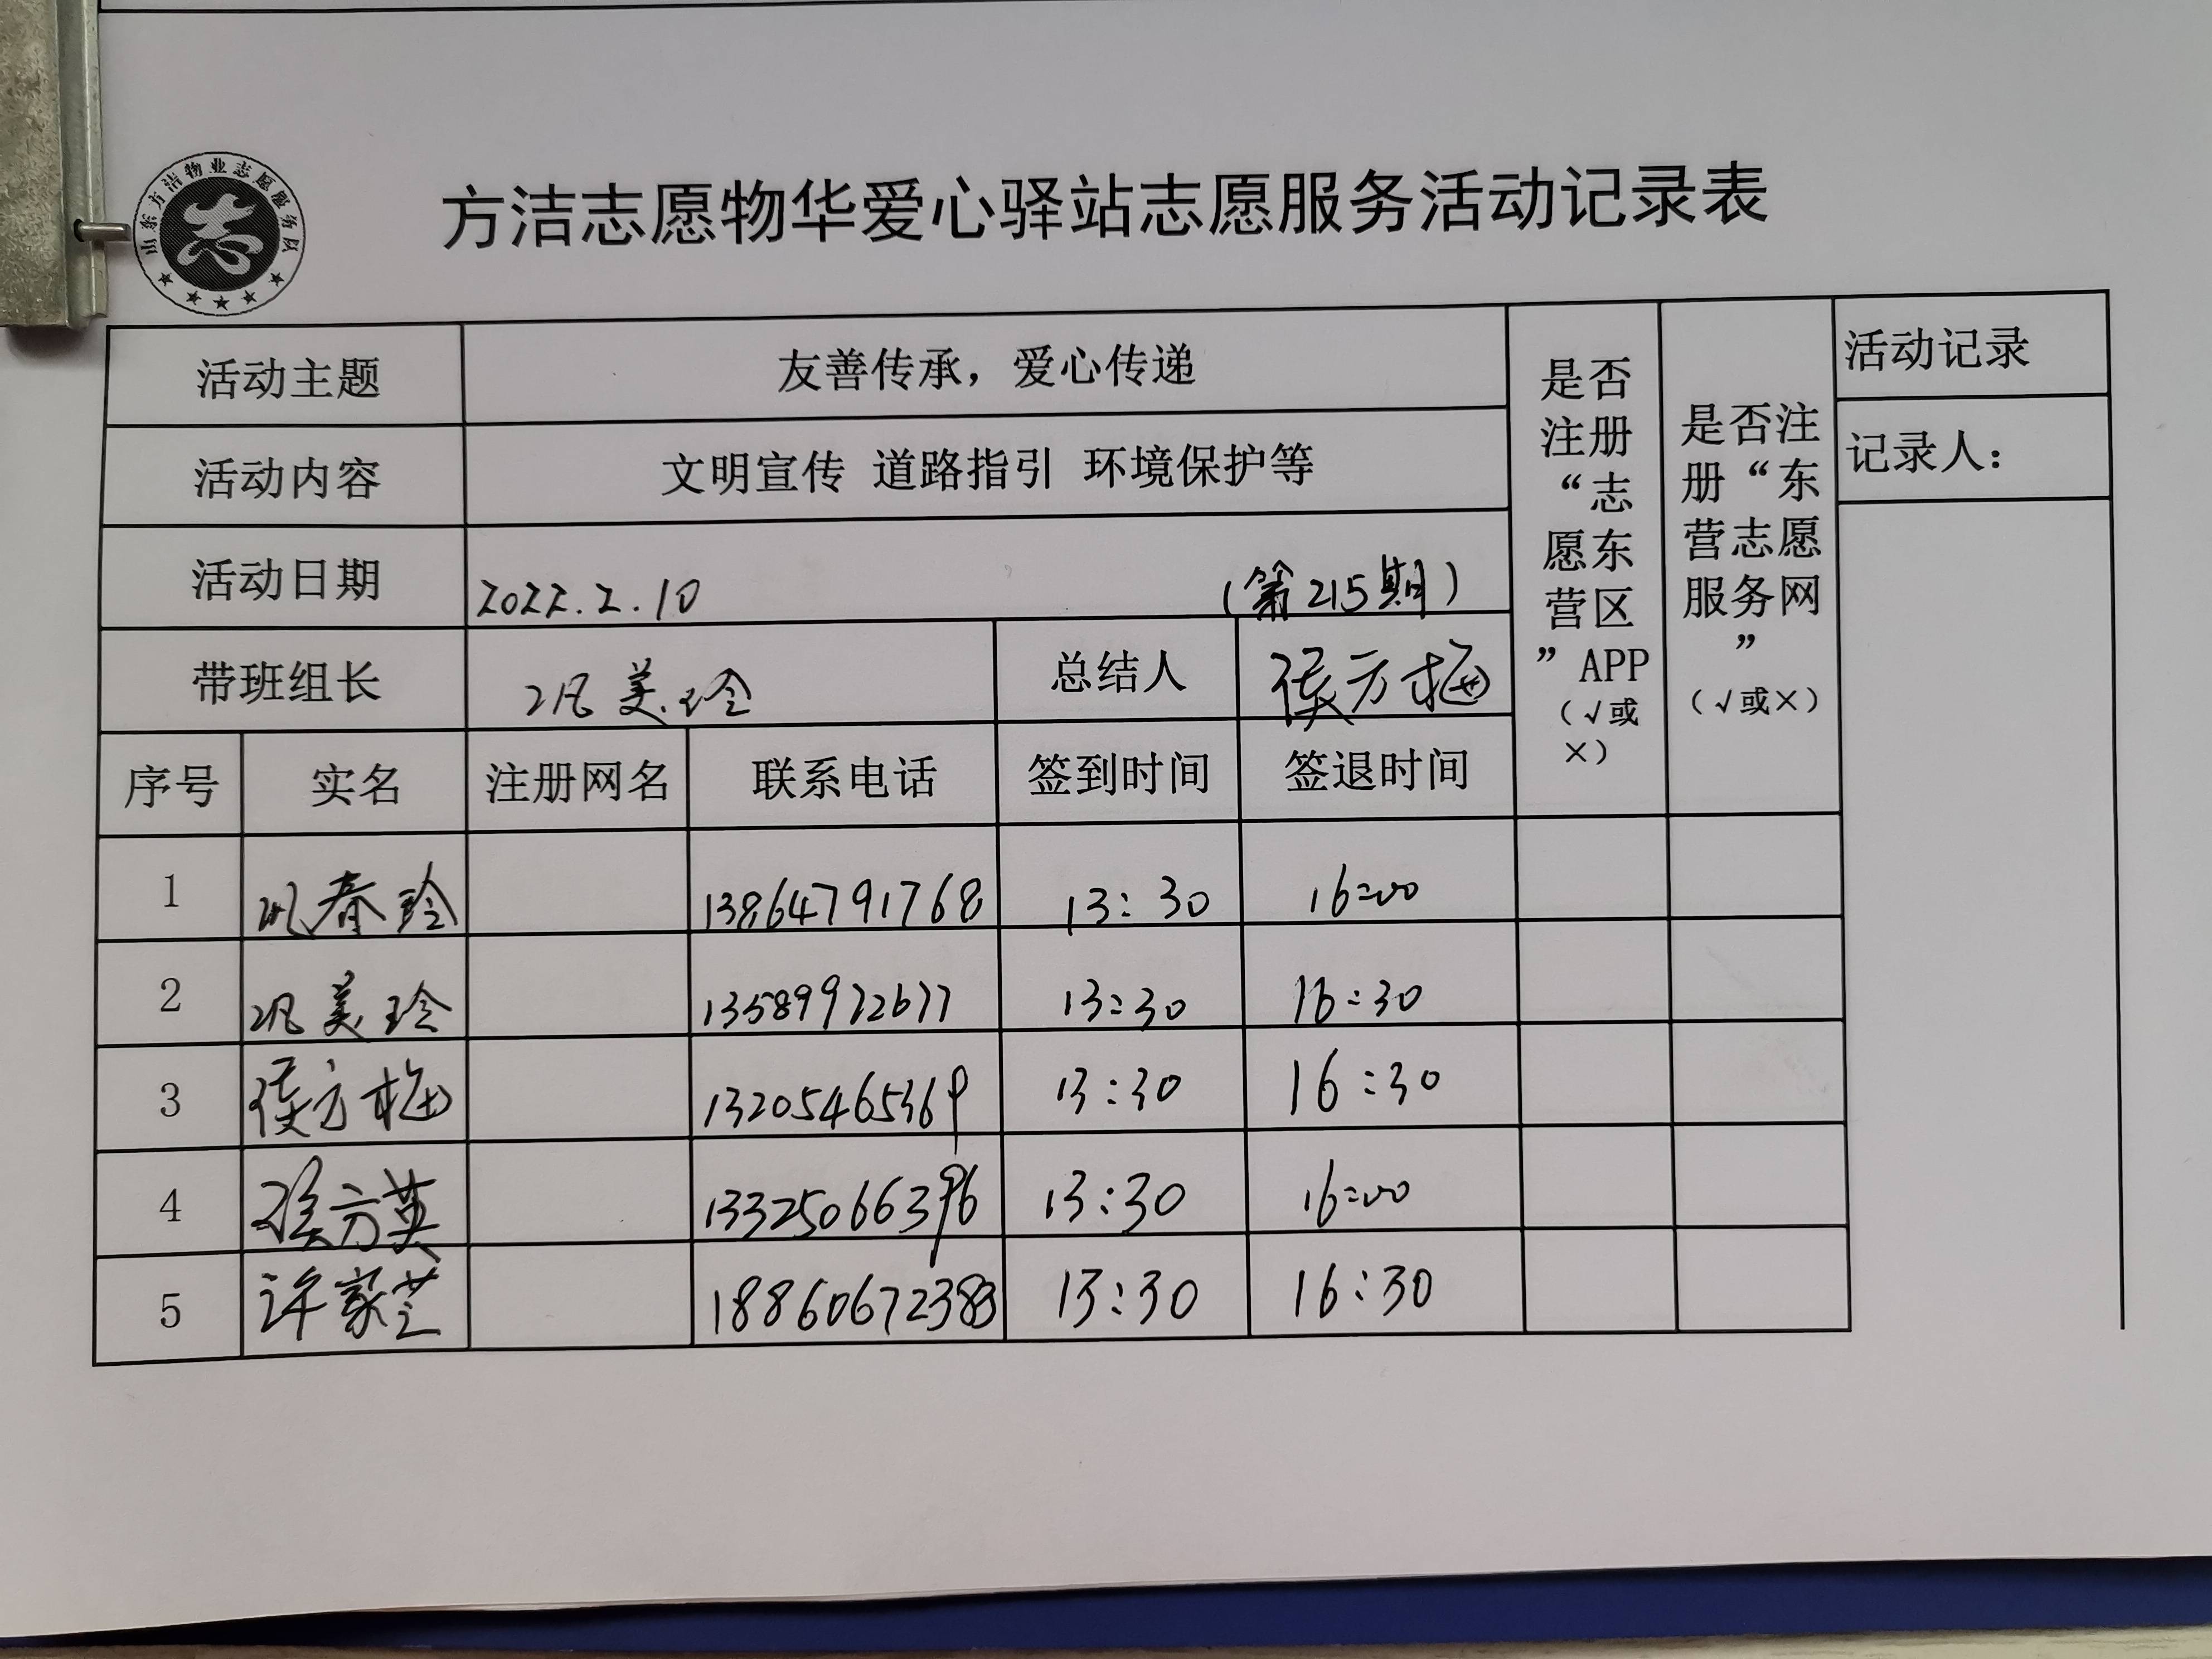 山东方洁物业志愿服务队
方洁志愿物华爱心驿站志愿服务活动记录表
活动主题 友善传承，爱心传递
活动内容 文明宣传 道路指引 环境保护等
活动日期 2022.2.10 (第215期)
带班组长 巩美玲 总结人 侯方梅
是否注册“志愿东营区”APP（√或×）
是否注册“东营志愿服务网”（√或×）
活动记录
记录人：
序号 实名 注册网名 联系电话 签到时间 签退时间
1 巩春玲 13864791768 13:30 16:00
2 巩美玲 13589972677 13:30 16:30
3 侯方梅 13205465369 13:30 16:30
4 侯方英 13325066396 13:30 16:00
5 许家芝 18860672383 13:30 16:30